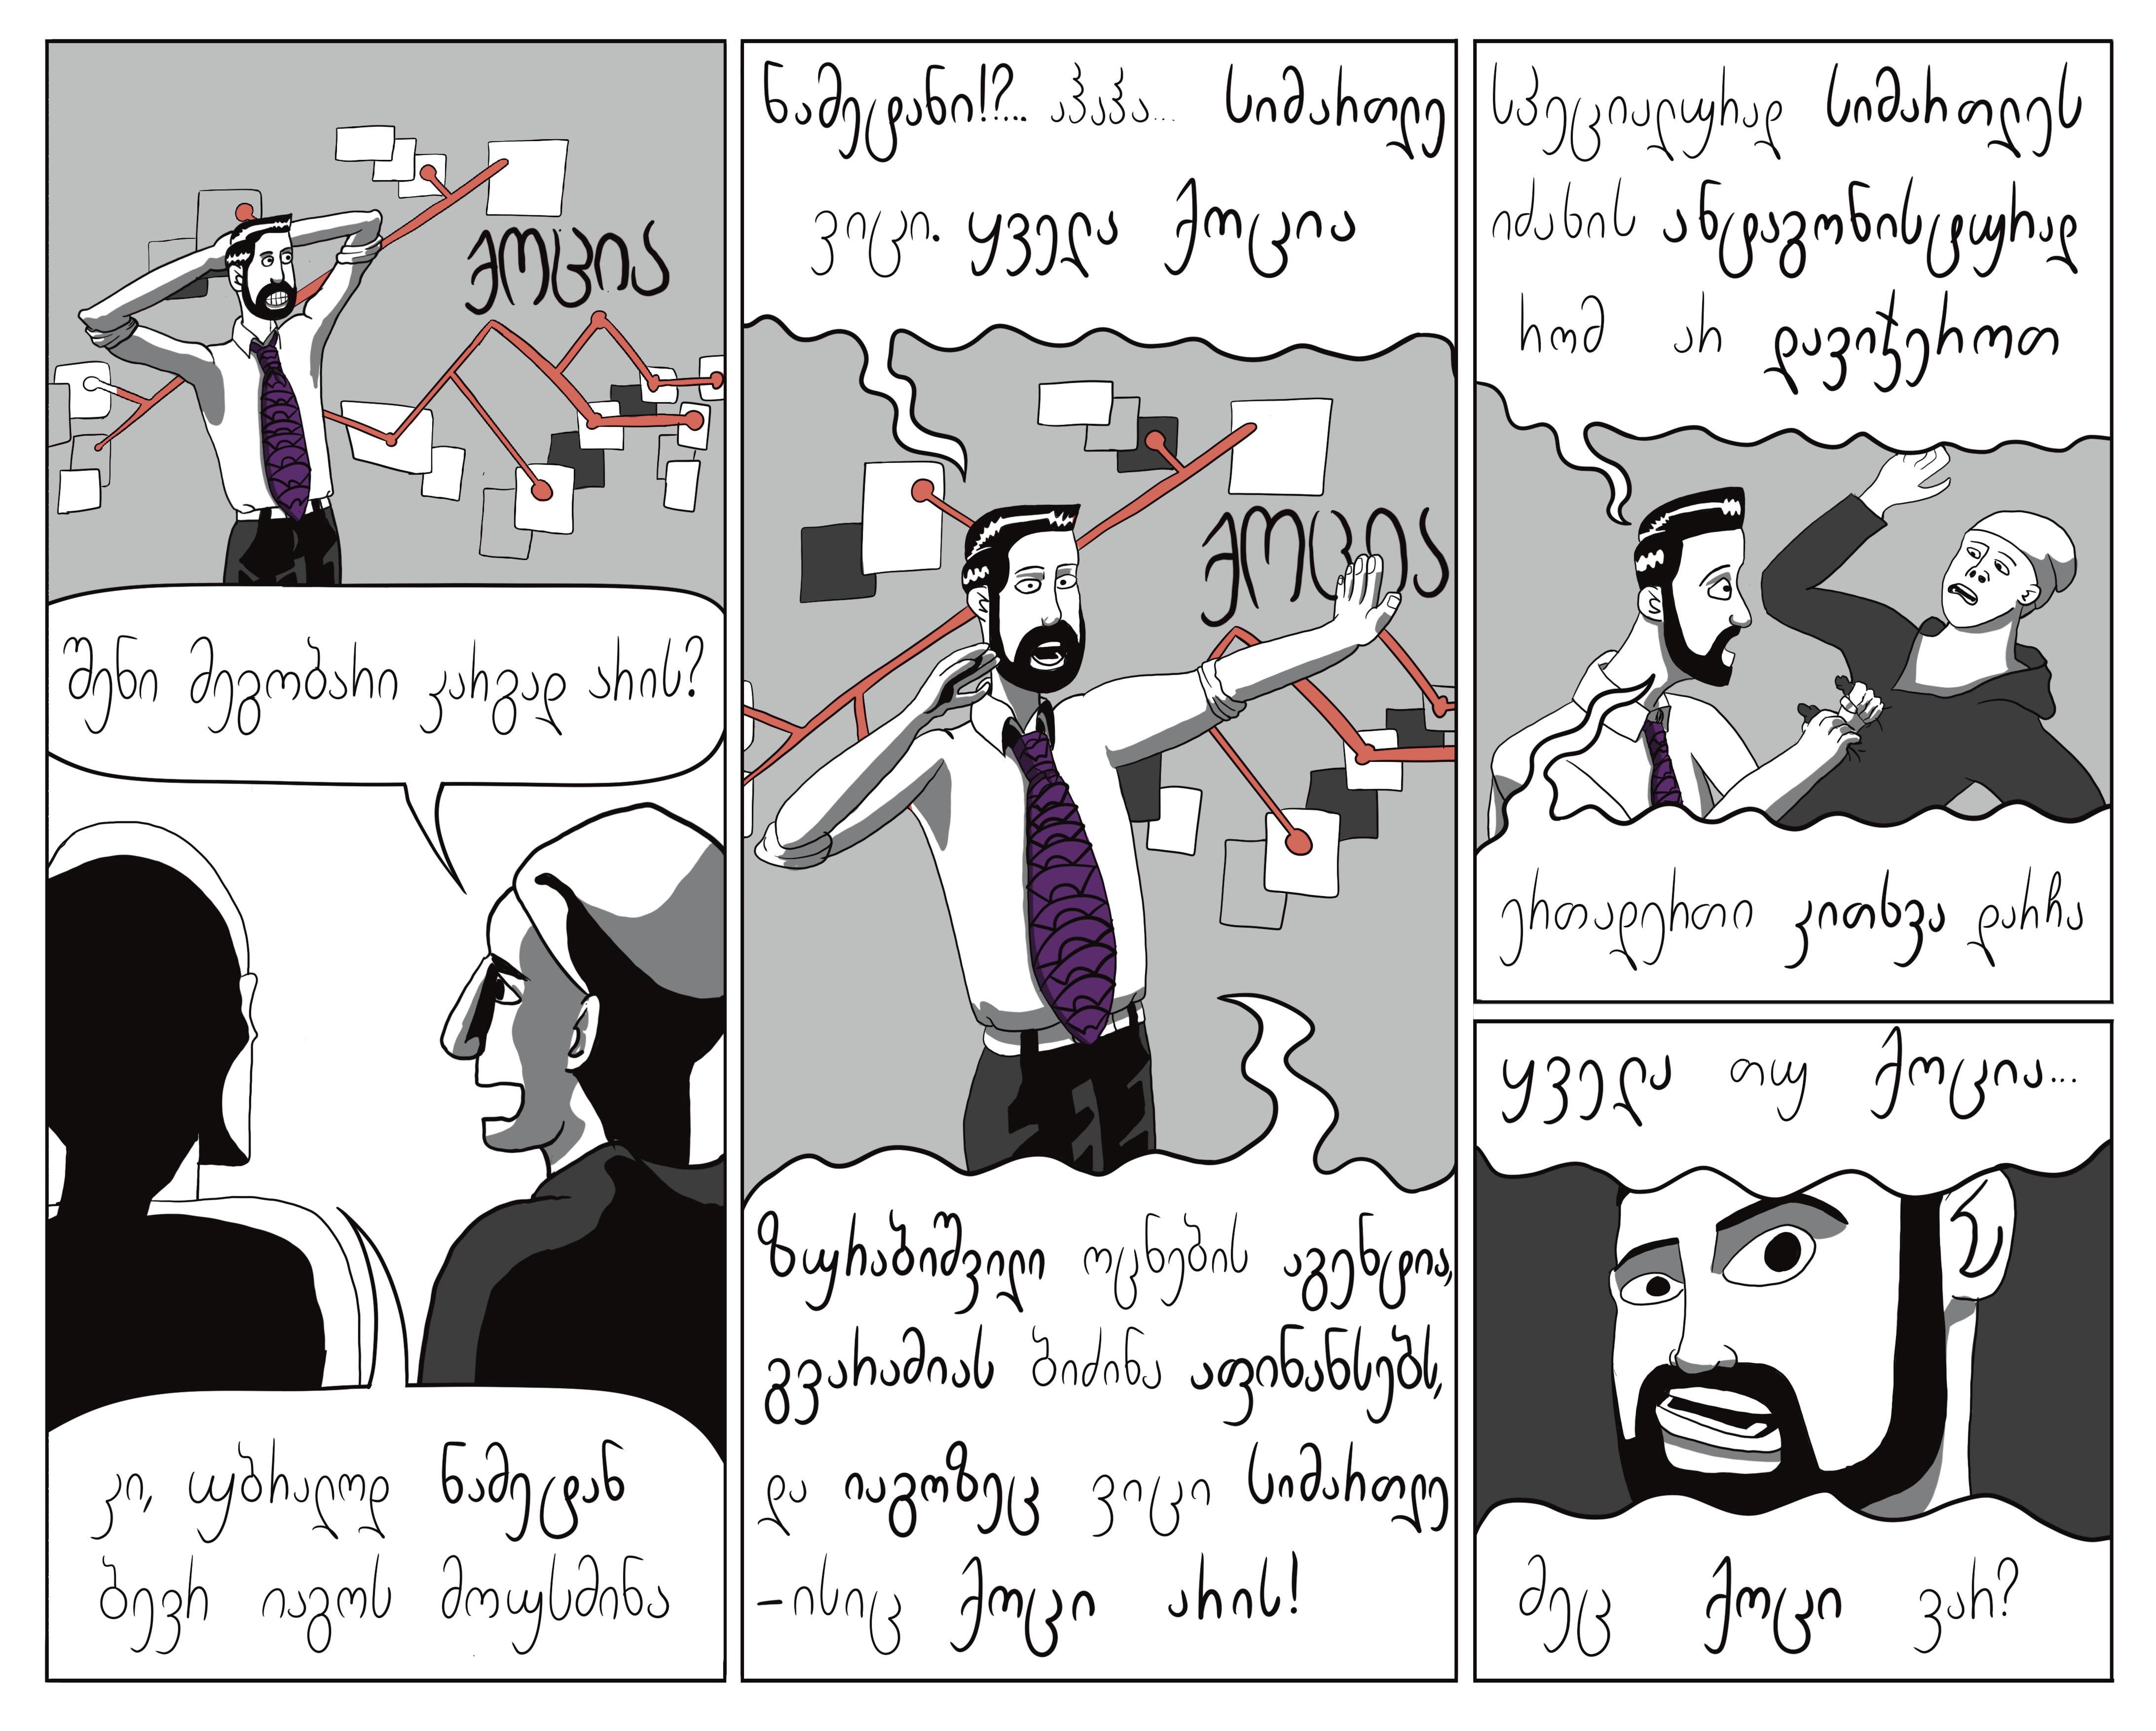 ქოცია
შენი მეგობარი კარგად არის?
კი, უბრალოდ ნამეტან
ბევრ იაგოს მოუსმინა
ნამეტანი!?... აჰაჰა... სიმართლე
ვიცი. ყველა ქოცია
ქოცია
ზურაბიშვილი ოცნების აგენტია,
გვარამიას ბიძინა აფინანსებს,
და იაგოზეც ვიცი სიმართლე
-ისიც ქოცი არის!
სპეციალურად სიმართლეს
იძახის ანტაგონისტურად
რომ არ დავიჭეროთ
ერთადერთი კითხვა დარჩა
ყველა თუ ქოცია...
მეც ქოცი ვარ?